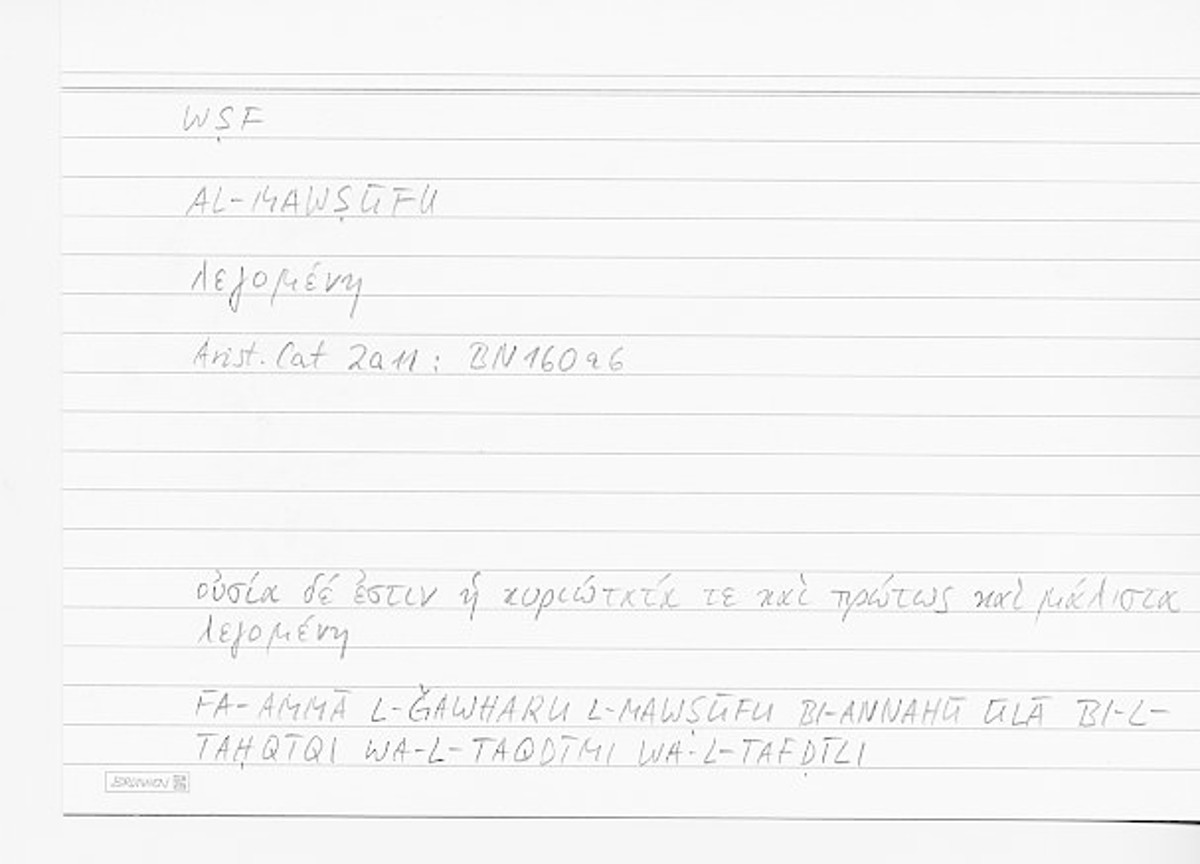 WṢF
AL-MAWṢŪFU
λεγομένη
Arist. Cat 2a11: BN160a6
οὐσία δέ ἐστιν ἡ κυριώτατά τε καὶ πρώτως καὶ μάλιστα
λεγομένη
FA-AMMĀ L-ǦAWHARU L-MAWṢŪFU BI-ANNAHŪ ŪLĀ BI-L-
TAḤQĪQI WA-L-TAQDĪMI WA-L-TAFḌĪLI
BRUNNEN